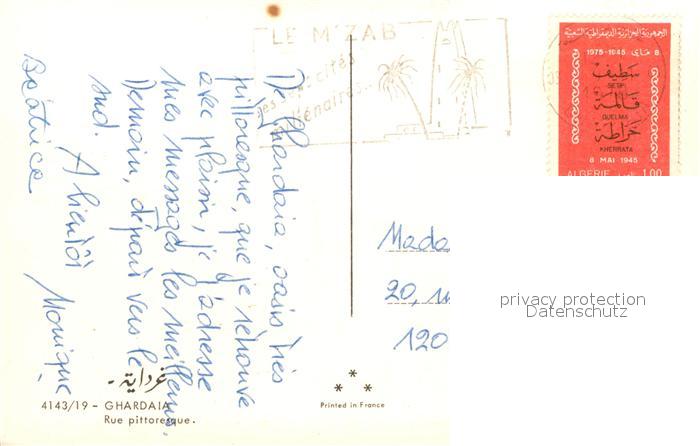 LE M'ZAB
ses 7 cités
millénaires...
الجمهورية الجزائرية الديمقراطية الشعبية
1975-1945 8 ماي
سطيف
SETIF
قالمة
GUELMA
خراطة
KHERRATA
8 MAI 1945
ALGERIE 1.00
De Ghardaia, oasis très
pittoresque, que je retrouve
avec plaisir, je t'adresse
mes messages les meilleurs.
Demain, départ vers le
sud. A bientôt
Monique
Béatrice
Mada
20,
120
privacy protection
Datenschutz
غرداية -
4143/19 - GHARDAIA
Rue pittoresque.
Printed in France